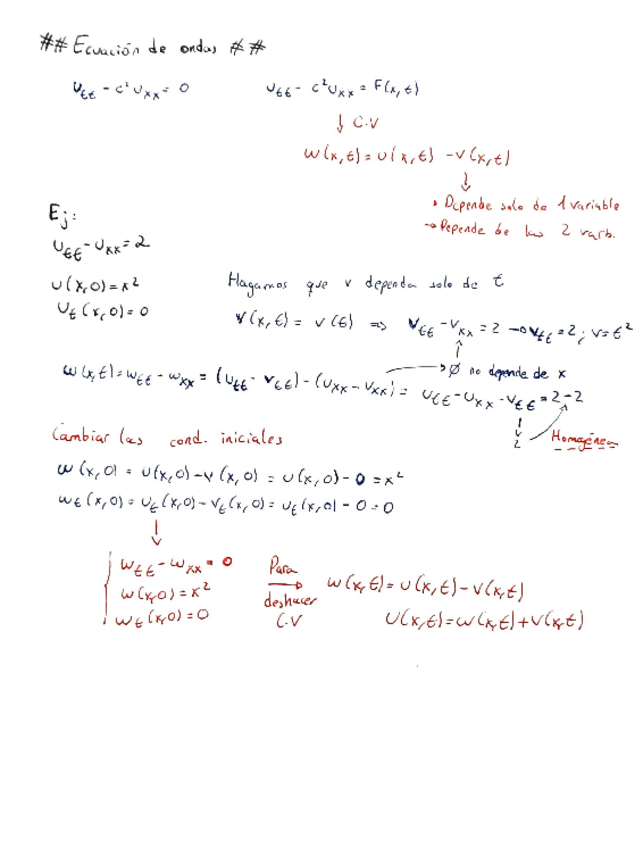 ## Ecuación de ondas ##
u_tt - c² u_xx = 0   u_tt - c² u_xx = F(x,t)
↓ C.V
w(x,t) = u(x,t) - v(x,t)
↓
• Depende solo de 1 variable
→ Depende de las 2 varb.
Ej:
u_tt - u_xx = 2
u(x,0) = x²   Hagamos que v dependa solo de t
u_t(x,0) = 0   v(x,t) = v(t) ⇒ v_tt - v_xx = 2 → v_tt = 2; v = t²
→ ∅ no depende de x
w(x,t) = w_tt - w_xx = (u_tt - v_tt) - (u_xx - v_xx) = u_tt - u_xx - v_tt = 2 - 2
↓
2   Homogénea
Cambiar las cond. iniciales
w(x,0) = u(x,0) - v(x,0) = u(x,0) - 0 = x²
w_t(x,0) = u_t(x,0) - v_t(x,0) = u_t(x,0) - 0 = 0
↓
w_tt - w_xx = 0
w(x,0) = x²
w_t(x,0) = 0
Para → deshacer C.V
w(x,t) = u(x,t) - v(x,t)
u(x,t) = w(x,t) + v(x,t)